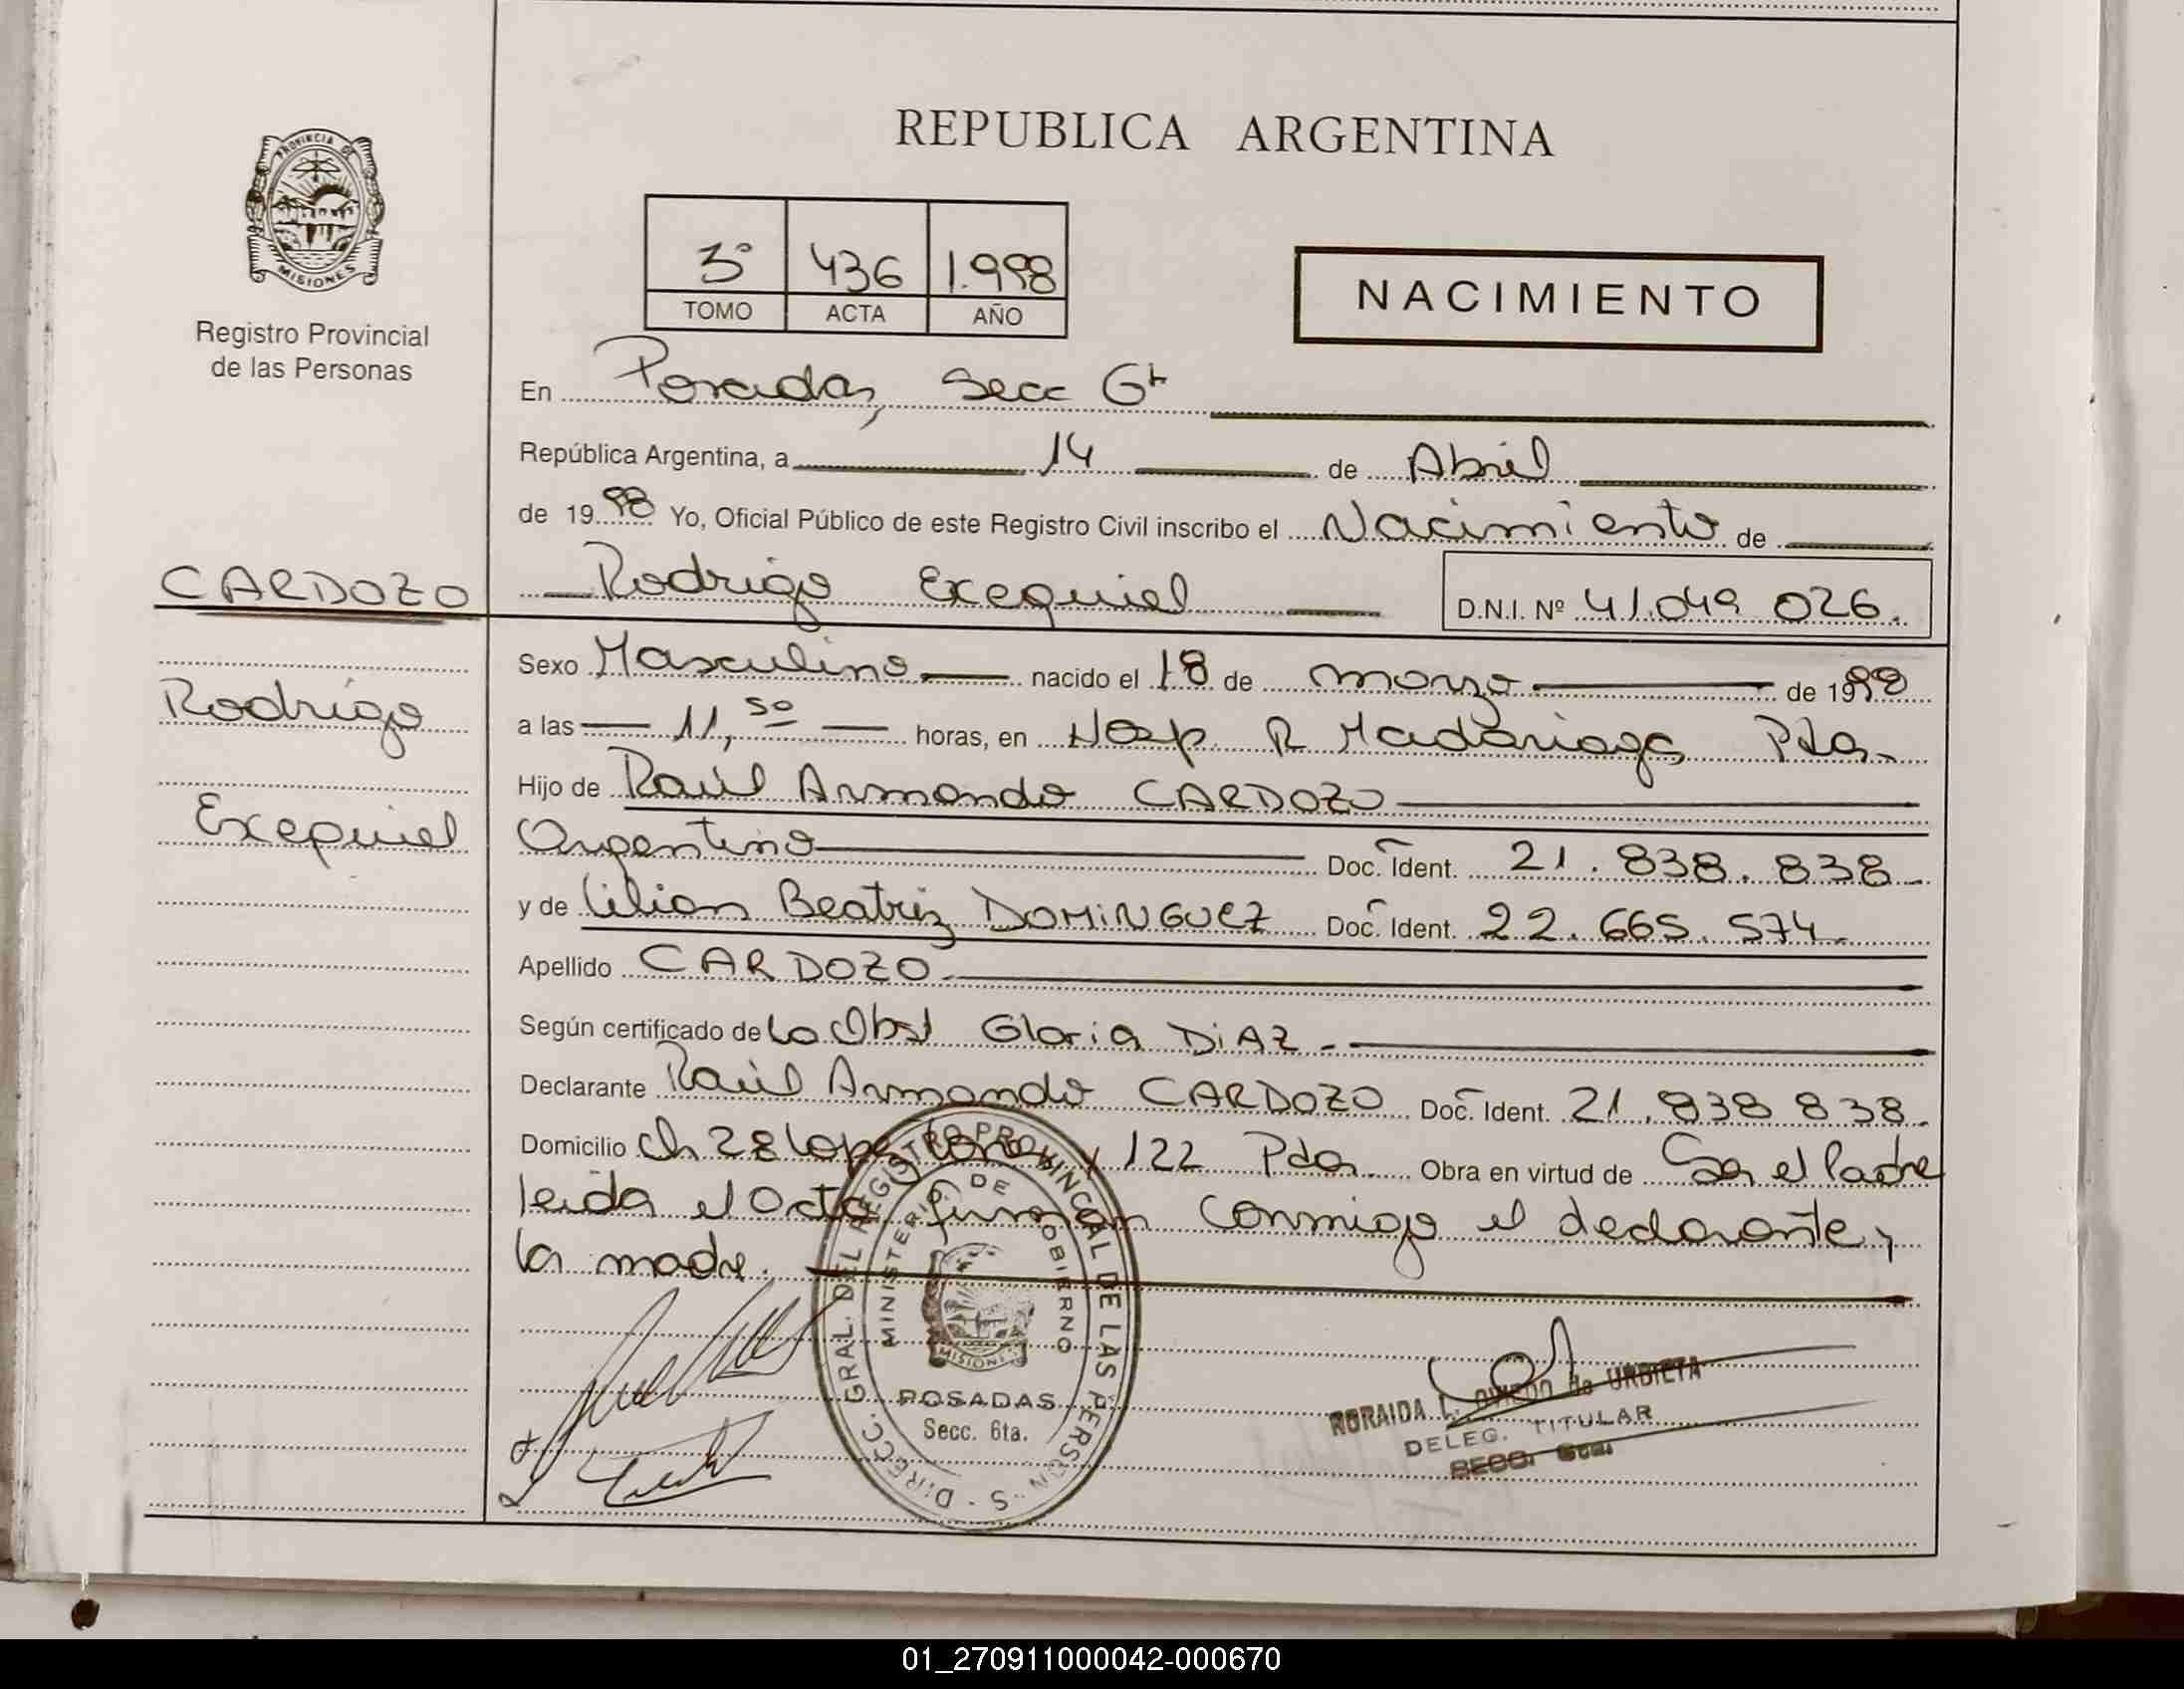 REPUBLICA ARGENTINA
PROVINCIA DE
MISIONES
Registro Provincial
de las Personas
3° 436 1.998
TOMO ACTA AÑO
NACIMIENTO
En Posadas, Secc 6ta
República Argentina, a 14 de Abril
de 1998 Yo, Oficial Público de este Registro Civil inscribo el Nacimiento de
CARDOZO
Rodrigo Exequiel D.N.I. Nº 41.049 026.
Sexo Masculino nacido el 18 de marzo de 1998
Rodrigo
a las 11,50 horas, en Hosp. R Madariaga Pdas.
Hijo de Raúl Armando CARDOZO
Exequiel
Argentino Doc. Ident. 21.838.838
y de Lilian Beatriz DOMINGUEZ Doc. Ident. 22.665.574
Apellido CARDOZO
Según certificado de la Obst Gloria DIAZ.-
Declarante Raúl Armando CARDOZO Doc. Ident. 21.838 838.
Domicilio Ch 28 Lopez Torres y 122 Pdas. Obra en virtud de Ser el Padre
leida el acta firman conmigo el declarante y
la madre.
DIRECC. GRAL. DEL REGISTRO PROVINCIAL DE LAS PERSONAS
MINISTERIO DE GOBIERNO
MISIONES
POSADAS
Secc. 6ta.
L. OVIEDO de URBIETA
DELEG. TITULAR
SECC. 6ta.
01_270911000042-000670